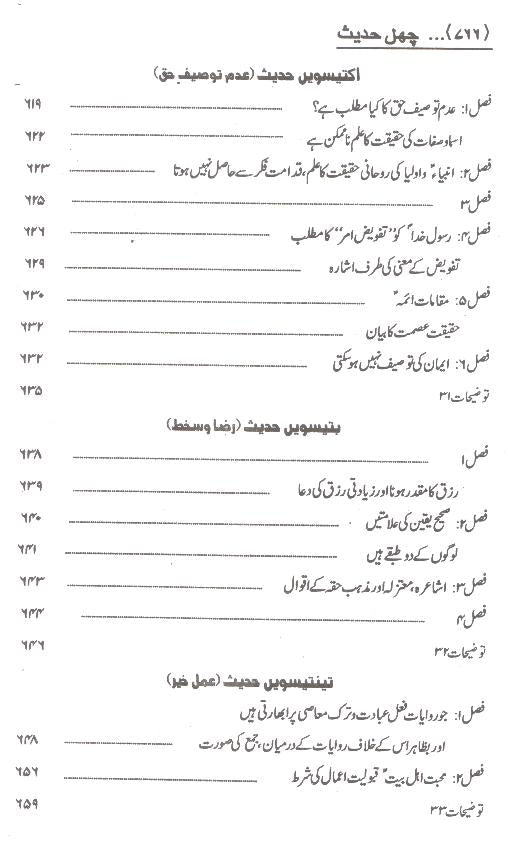 ﴿۷۶۶﴾ ... چهل حدیث
اکتیسویں حدیث (عدم توصیف حق)
فصل ۱: عدم توصیف حق کا کیا مطلب ہے؟ ۶۱۹
اسما و صفات کی حقیقت کا علم ناممکن ہے ۶۲۲
فصل ۲: انبیاءؑ و اولیا کی روحانی حقیقت کا علم، قدامت فکر سے حاصل نہیں ہوتا ۶۲۳
فصل ۳ ۶۲۵
فصل ۴: رسول خداؐ کو "تفویض امر" کا مطلب ۶۲۶
تفویض کے معنی کی طرف اشارہ ۶۲۹
فصل ۵: مقامات ائمہؑ ۶۳۰
حقیقت عصمت کا بیان ۶۳۲
فصل ۶: ایمان کی توصیف نہیں ہو سکتی ۶۳۲
توضیحات ۳۱ ۶۳۵
بتیسویں حدیث (رضا و سخط)
فصل ۱ ۶۳۸
رزق کا مقدر ہونا اور زیادتی رزق کی دعا ۶۳۹
فصل ۲: صحیح یقین کی علامتیں ۶۴۰
لوگوں کے دو طبقے ہیں ۶۴۱
فصل ۳: اشاعرہ، معتزلہ اور مذہب حقہ کے اقوال ۶۴۳
فصل ۴ ۶۴۴
توضیحات ۳۲ ۶۴۶
تینتیسویں حدیث (عمل خیر)
فصل ۱: جو روایات فعل عبادت و ترک معاصی پر ابھارتی ہیں
اور بظاہر اس کے خلاف روایات کے درمیان، جمع کی صورت ۶۴۸
فصل ۲: محبت اہل بیتؑ قبولیت اعمال کی شرط ۶۵۶
توضیحات ۳۳ ۶۵۹